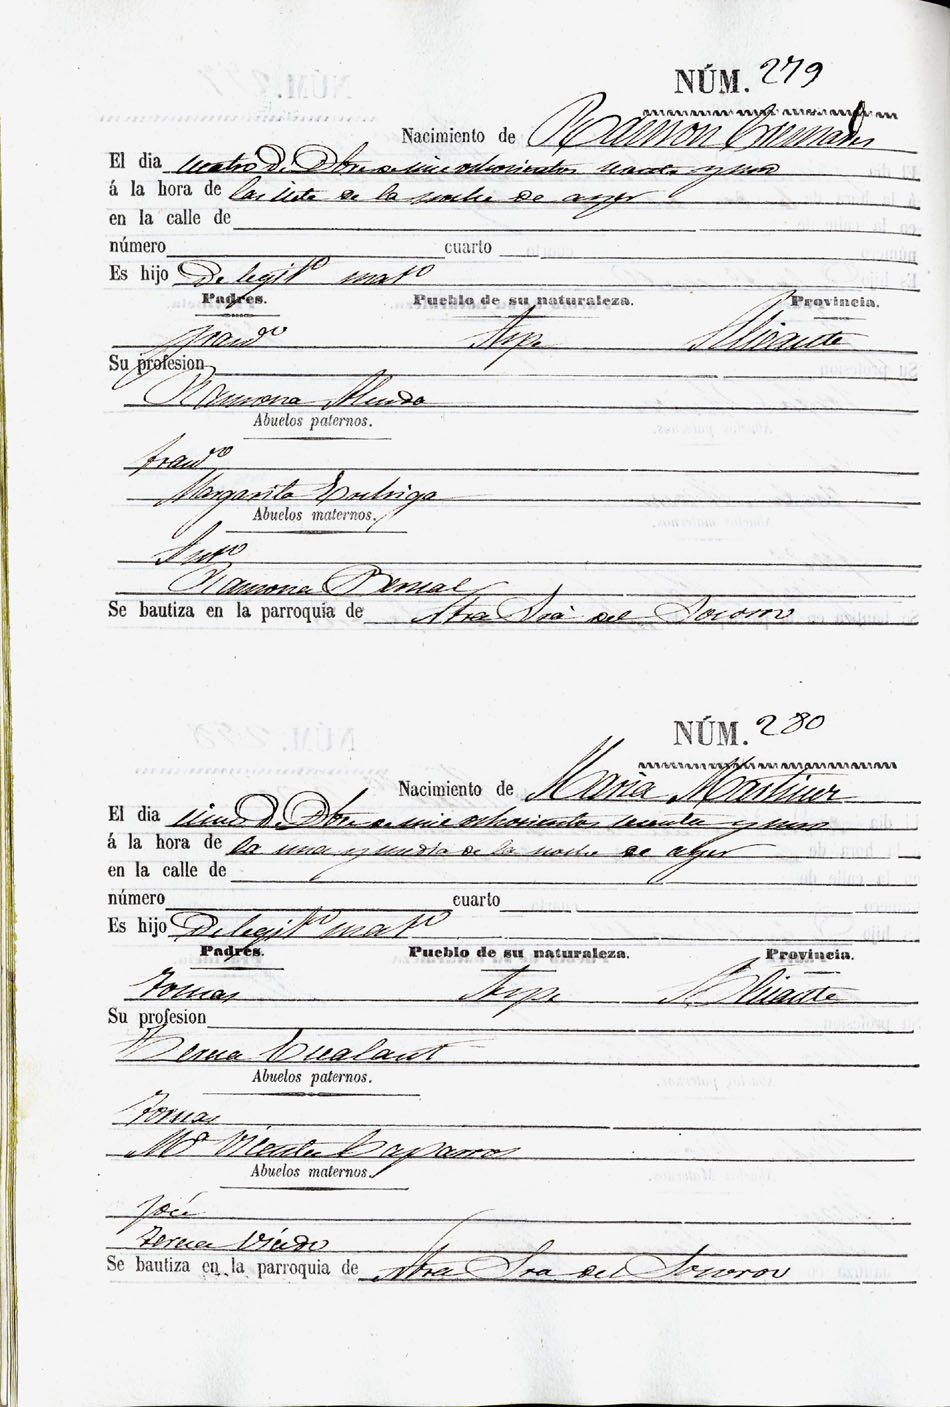 NÚM. 279
Nacimiento de Ramon Cremades
El dia cuatro de Dbre de mil ochocientos y uno
á la hora de las siete de la noche de ayer
en la calle de
número cuarto
Es hijo De legitº matº
Padres. Pueblo de su naturaleza. Provincia.
Franᶜº Aspe Alicante
Su profesion
Ramona
Abuelos paternos.
Franᶜº
Margarita
Abuelos maternos.
Antº
Ramona Bernal
Se bautiza en la parroquia de Ntra Sra del Socorro
NÚM. 280
Nacimiento de Maria Martinez
El dia cinco de Dbre de mil ochocientos sesenta y uno
á la hora de la una y media de la noche de ayer
en la calle de
número cuarto
Es hijo De legitº matº
Padres. Pueblo de su naturaleza. Provincia.
Tomas Aspe Alicante
Su profesion
Teresa
Abuelos paternos.
Tomas
Mª Vicenta Caparros
Abuelos maternos.
José
Teresa
Se bautiza en la parroquia de Ntra Sra del Socorro